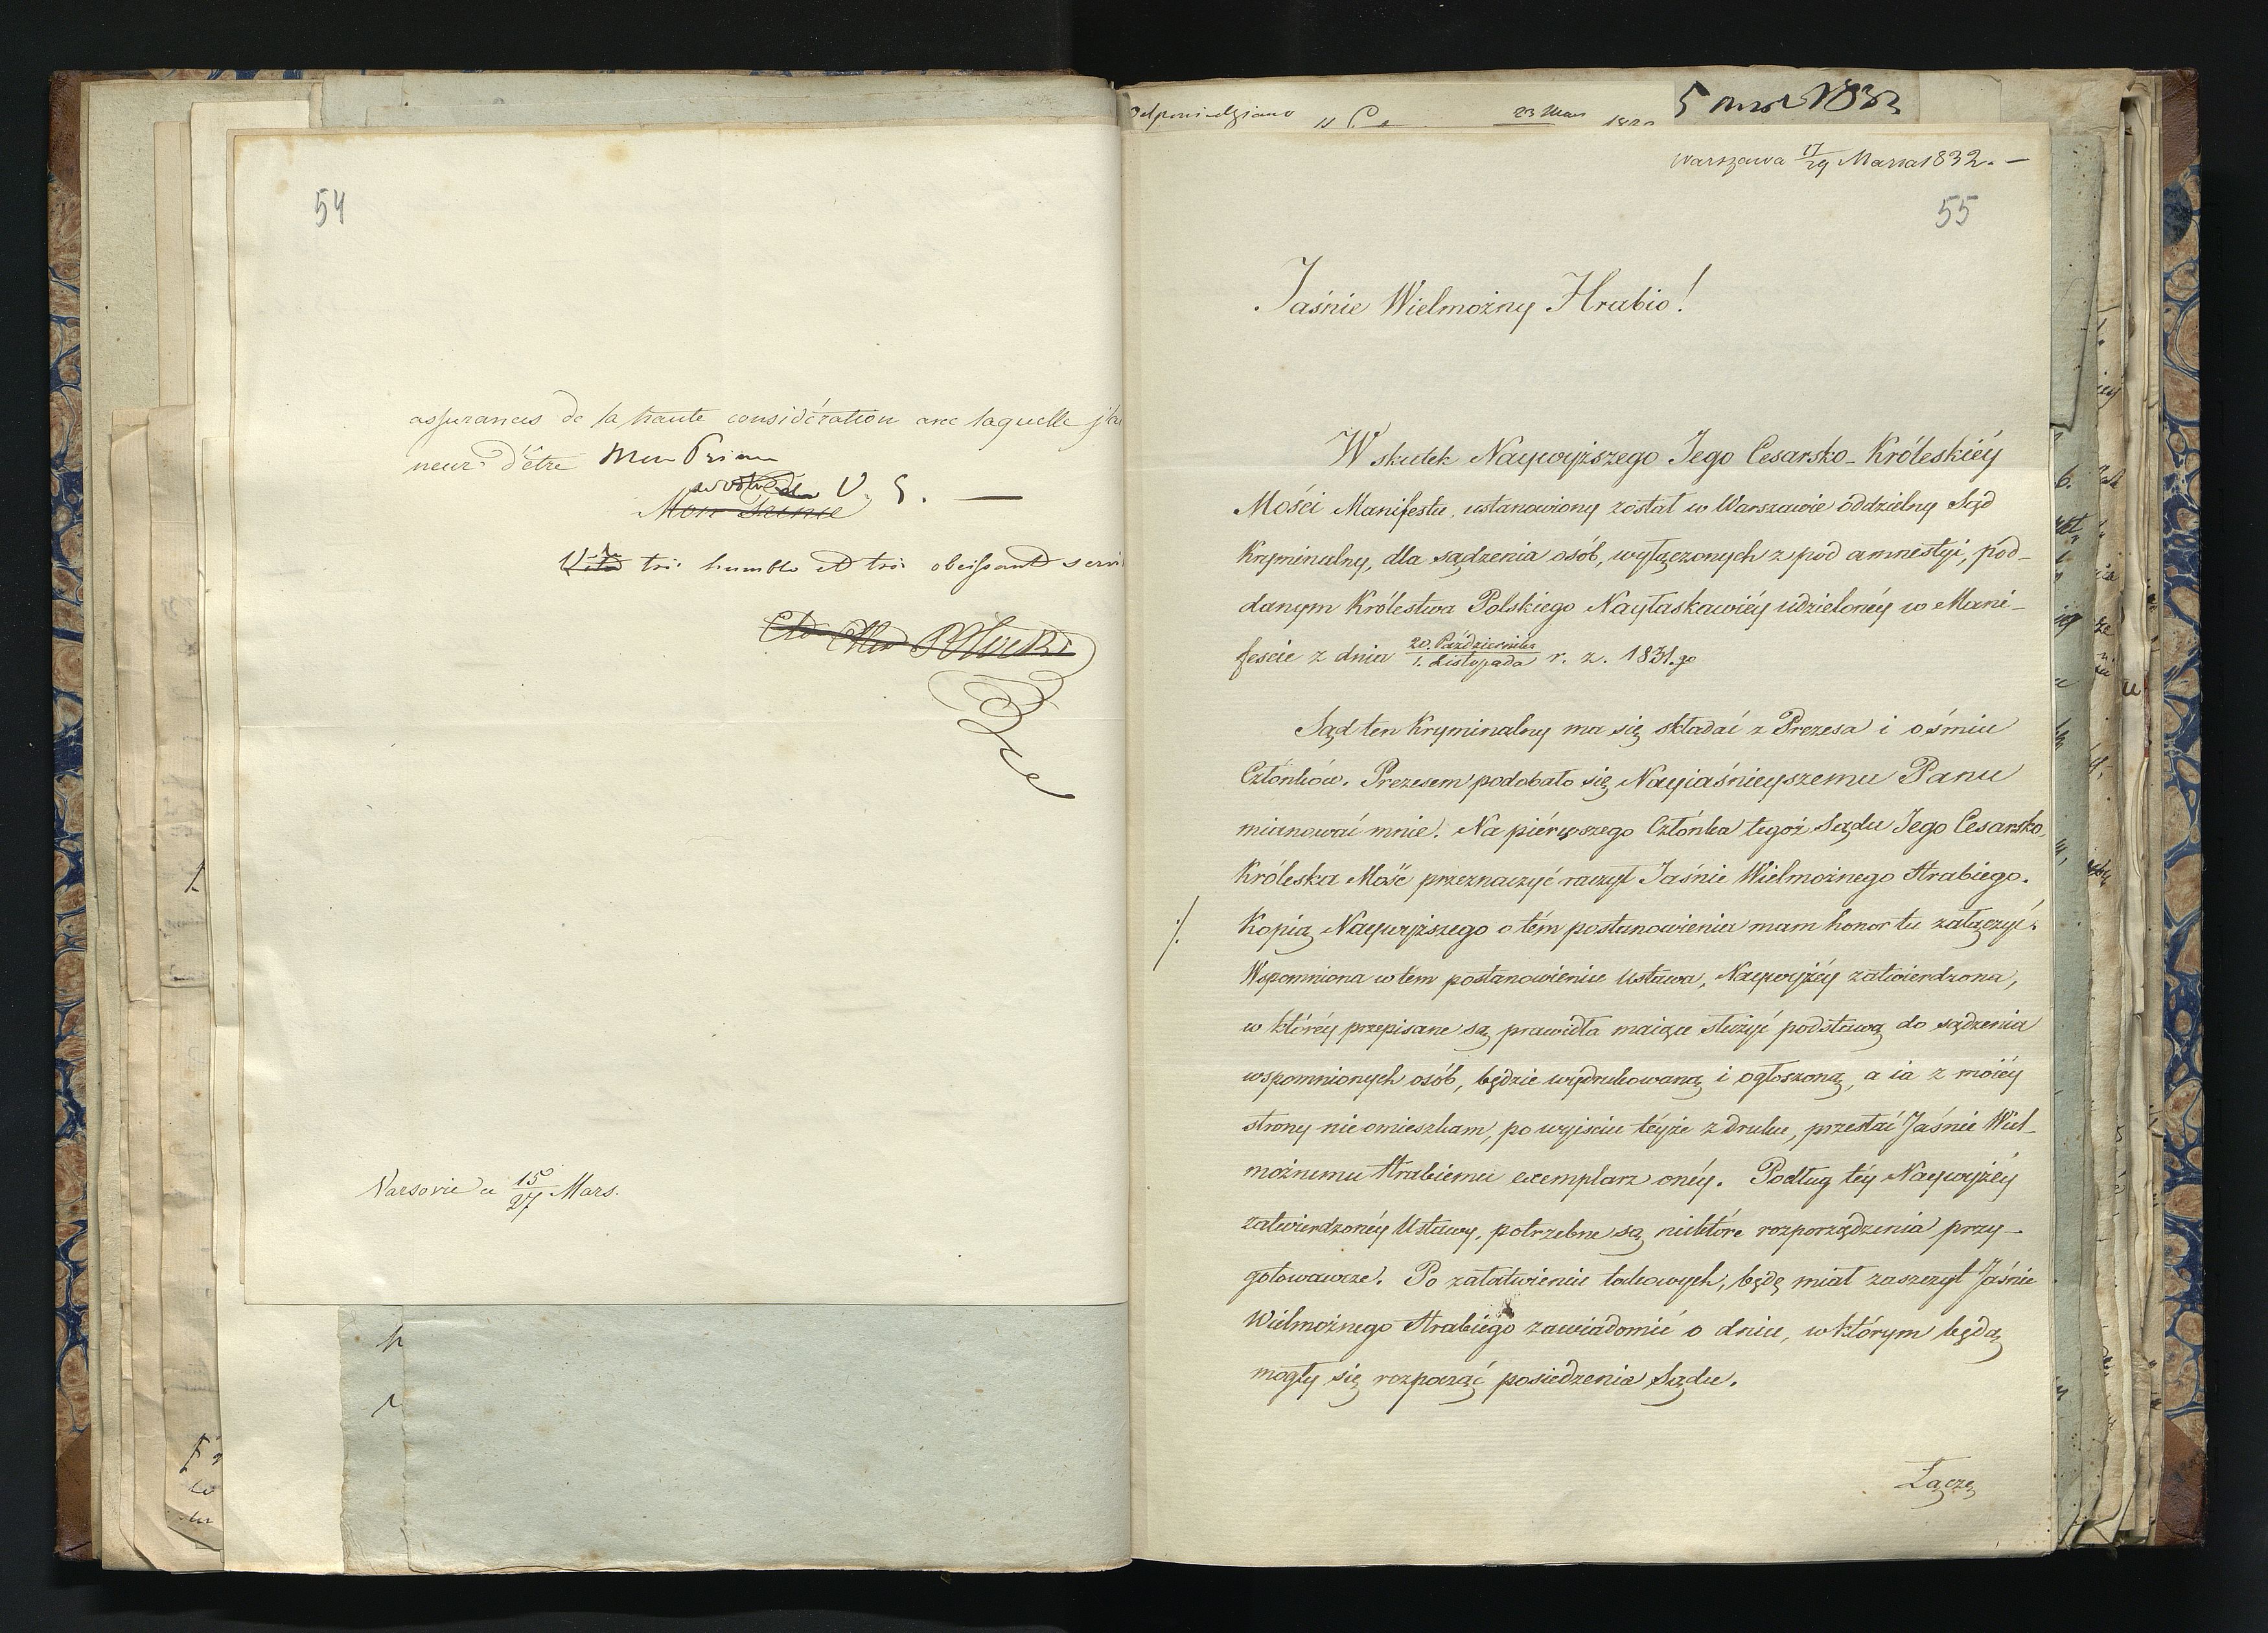 54
assurances de la haute considération avec laquelle j'ai
neur d'être Mon Prince
V. S. —
Mon Prince
très humble et très obéissant servi
Varsovie ce 15/27 Mars.
Odpowiedziano 23 Mars
Warszawa 17/29 Marca 1832. —
55
Jaśnie Wielmożny Hrabio!
W skutek Naywyższego Jego Cesarsko-Króleskiéy
Mości Manifestu, ustanowiony został w Warszawie oddzielny Sąd
Kryminalny, dla sądzenia osób, wyłączonych z pod amnestyi, pod-
danym Królestwa Polskiego Nayłaskawiéy udzielonéy w Mani-
feście z dnia 20. Października/1. Listopada r. z. 1831.go
Sąd ten Kryminalny ma się składać z Prezesa i ośmiu
Członków. Prezesem podobało się Nayiaśnieyszemu Panu
mianować mnie. Na piérwszego Członka tegoż Sądu Jego Cesarsko-
Króleska Mość przeznaczyć raczył Jaśnie Wielmożnego Hrabiego.
Kopią Naywyższego o tém postanowienia mam honor tu załączyć.
Wspomniona w tem postanowieniu Ustawa, Naywyżéy zatwierdzona,
w któréy przepisane są prawidła maiące służyć podstawą do sądzenia
wspomnionych osób, będzie wydrukowaną i ogłoszoną, a ia z moiéy
strony nieomieszkam, po wyjściu téyże z druku, przesłać Jaśnie Wiel-
możnemu Hrabiemu exemplarz onéy. Podług téy Naywyżéy
zatwierdzonéy Ustawy, potrzebne są niektóre rozporządzenia przy-
gotowawcze. Po załatwieniu takowych, będę miał zaszczyt Jaśnie
Wielmożnego Hrabiego zawiadomić o dniu, w którym będą
mogły się rozpocząć posiedzenia Sądu.
Łączę